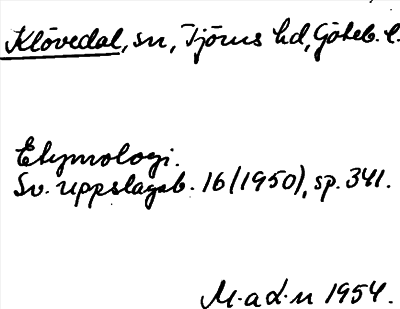 Klövedal, sn, Tjörns hd, Göteb. l.
Etymologi.
Sv. uppslagsb. 16 (1950), sp. 341.
M. a d. n 1954.